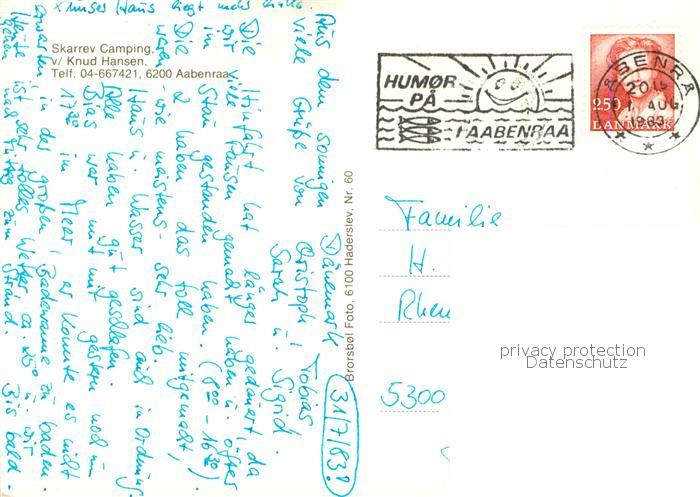 x unser Haus liegt
Skarrev Camping,
v/ Knud Hansen,
Telf. 04-667421, 6200 Aabenraa
31/7/83?
Aus dem sonnigen Dänemark
viele Grüße von Christoph, Tobias
Sarah u. Sigrid.
Die Hinfahrt hat länger gedauert, da
wir viele Pausen gemacht haben u. öfters
im Stau gestanden haben. (8°° - 16³⁰)
Die 2 haben das toll mitgemacht,
waren - wie meistens - sehr lieb.
Haus u. Wasser sind auch in Ordnung.
Alle haben gut geschlafen.
Bias war mit mir gestern noch um
17³⁰ im Meer, er konnte es nicht
erwarten in der großen Badewanne zu baden.
Heute ist sehr tolles Wetter ca. 25° u. wir
gehen nachmittag zum Strand. Bis bald.
Brorsbøl Foto, 6100 Haderslev, Nr. 60
HUMØR
PÅ
I AABENRAA
ÅBENRÅ
1. AUG
1983
250
DANMARK
Familie
H.
Rhein
5300
privacy protection
Datenschutz